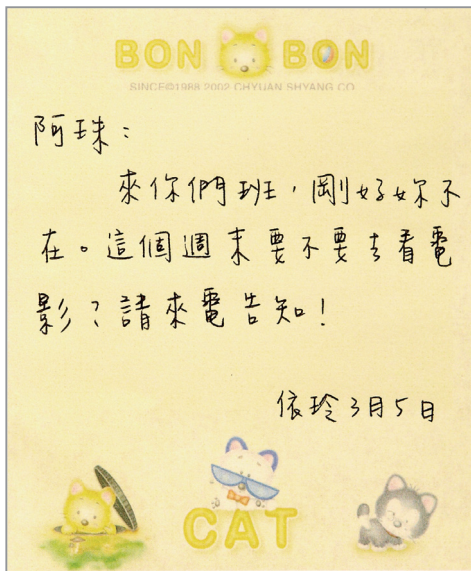 BON BON
SINCE©1988 2002 CHYUAN SHYANG CO.
阿珠：
來你們班，剛好妳不
在。這個週末要不要去看電
影？請來電告知！
依玲3月5日
CAT